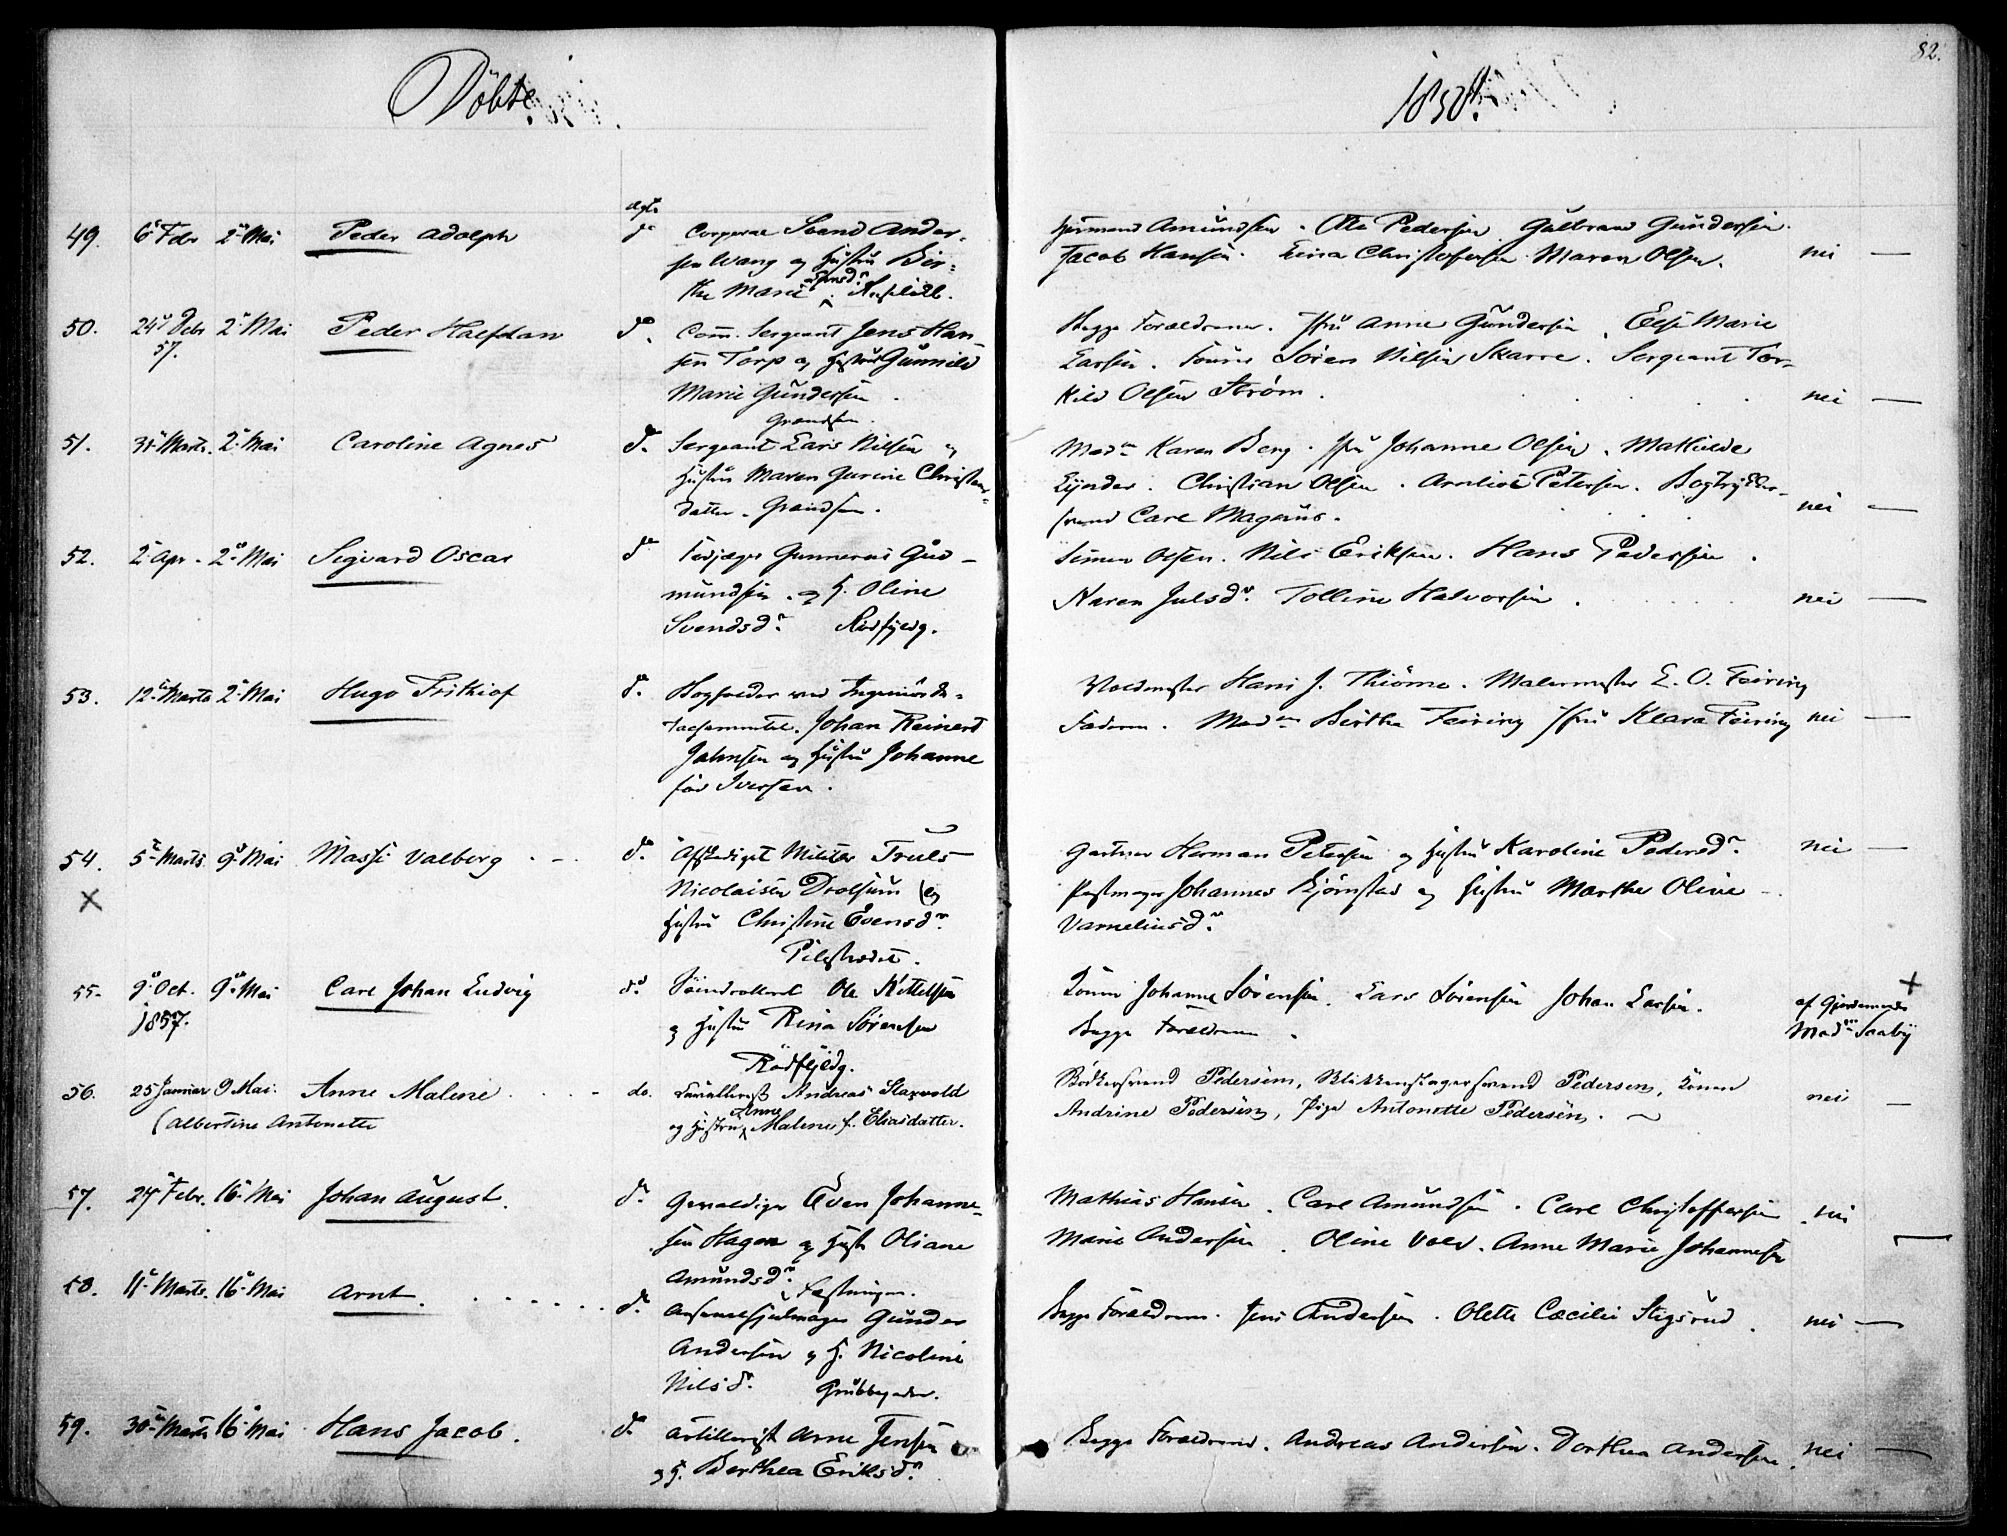 82.
Döbte.
1858.
49. 6 Febr 2 Mai Peder Adolph ægte
do Corporal Svend Ander-
sen Wang og Hustru Ber-
the Marie
Amundsen . Ole Pedersen Gulbrand Gundersen.
Jacob Hansen. Christofersen . Maren Olsen. nei —
50. 24 Decbr 57. 2 Mai Peder Halfdan do. Com. Sergeant Jens Han-
sen Torp og Hustru Gunnild
Marie Gundersen
Begge Forældrene. Jfru Anne Gundersen . Else Marie
Larsen . Sören Nilsen Skarre . Sergeant Tor-
kild Olsen Strøm . nei —
51. 31 Marts. 2 Mai Caroline Agnes do. Sergeant Lars Nilsen og
Hustru Maren Gurine Christens-
datter . Grændsen .
Mad Karen Berg . Jfru Johanne Olsen . Mathilde
Christian Olsen . Petersen . Bogtrykker-
svend Carl Magnus . nei —
52. 2 Apr . 2 Mai Sigvard Oscar do Gunnerus Gud-
mundsen . og H. Oline
Svendsd. Rödfjeldg.
Simen Olsen . Nils Eriksen . Hans Pedersen .
Karen Julsd. Halvorsen . nei —
53. 12 Marts 2 Mai Hugo Frithiof do. ved Ingeniörde-
tachementet. Johan Reinert
Jahnsen og Hustru Johanne
föd Iversen .
Hans J. Thiöme . Malermester E. O. Feiring
Faderen . Mad Birthe Feiring Jfru Klara Feiring nei —
54. 5 Marts. 9 Mai Valborg . — do. Afskediget Militær Truls
Nicolaisen Drolsum og
Hustru Christine Evensd.
Pilestrædet .
Gartner Herman Petersen og Hustru Karoline Pedersd. nei —
Johannes Björnstad og Hustru Marthe Oline
Varneliusd.
X
55. 9 Oct. 1857. 9 Mai Carl Johan Ludvig do. Ole Kittelsen
og Hustru Rina Sörensen
Rödfjeldg.
Konen Johanne Sörensen . Lars Sörensen Johan Larsen .
Begge Forældrene .
+ af Gjordemoder
Mad Saaby
56. 25 Januar 9 Mai. Anne Malene . . . - do. Andreas
(Albertine Antonette
og Hustru Anne Malene f. Eliasdatter.
Bödkersvend Pedersen, Blikkenslagersvend Pedersen, Konen
Andrine Pedersen, Pige Antonette Pedersen . nei —
57. 24 Febr. 16 Mai Johan August . do. Gevaldiger Even Johanne-
sen Hagen og Hustr Oliane
Amundsd. Fæstningen.
Mathias Hansen . Carl Amundsen . Carl Christoffersen . nei
Marie Andersen . Oline Vold . Anne Marie Johannesen —
58. 11 Marts. 16 Mai Arnt . . . . . . . do. Gunder
Andersen og H. Nicoline
Nilsd. Grubbegaden.
Begge Forældrene . Jens Andersen . Olette Cæcilie Stigsrud . nei —
59. 30 Marts 16 Mai Hans Jacob . do. Artillerist Arne Jensen
og H. Berthea Eriksd.
Begge Forældrene . Andreas Andersen . Dorthea Andersen . nei —